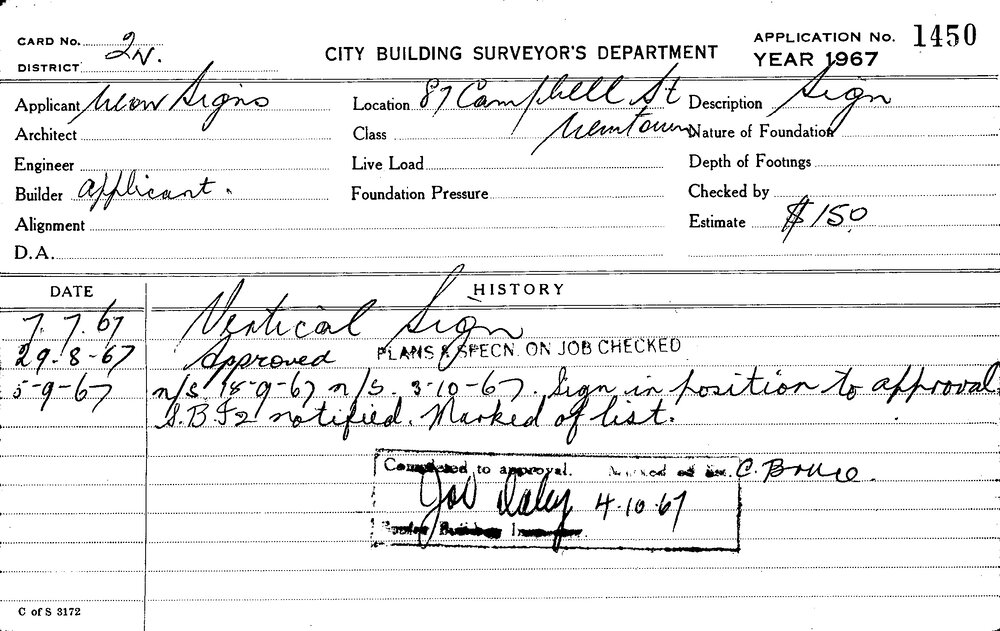 CARD No. 2N.
DISTRICT
CITY BUILDING SURVEYOR'S DEPARTMENT
APPLICATION No. 1450
YEAR 1967
Applicant Neon Signs Location 87 Campbell St Description Sign
Architect Class Newtown Nature of Foundation
Engineer Live Load Depth of Footings
Builder applicant. Foundation Pressure Checked by
Alignment Estimate $150
D.A.
DATE HISTORY
7.7.67 Vertical Sign
29-8-67 Approved PLANS & SPECN. ON JOB CHECKED
5-9-67 n/s. 18-9-67 n/s. 3-10-67. Sign in position to approval
S.B.I2 notified. Marked of list.
Completed to approval. C. Bruce.
Daley 4.10.67
C of S 3172